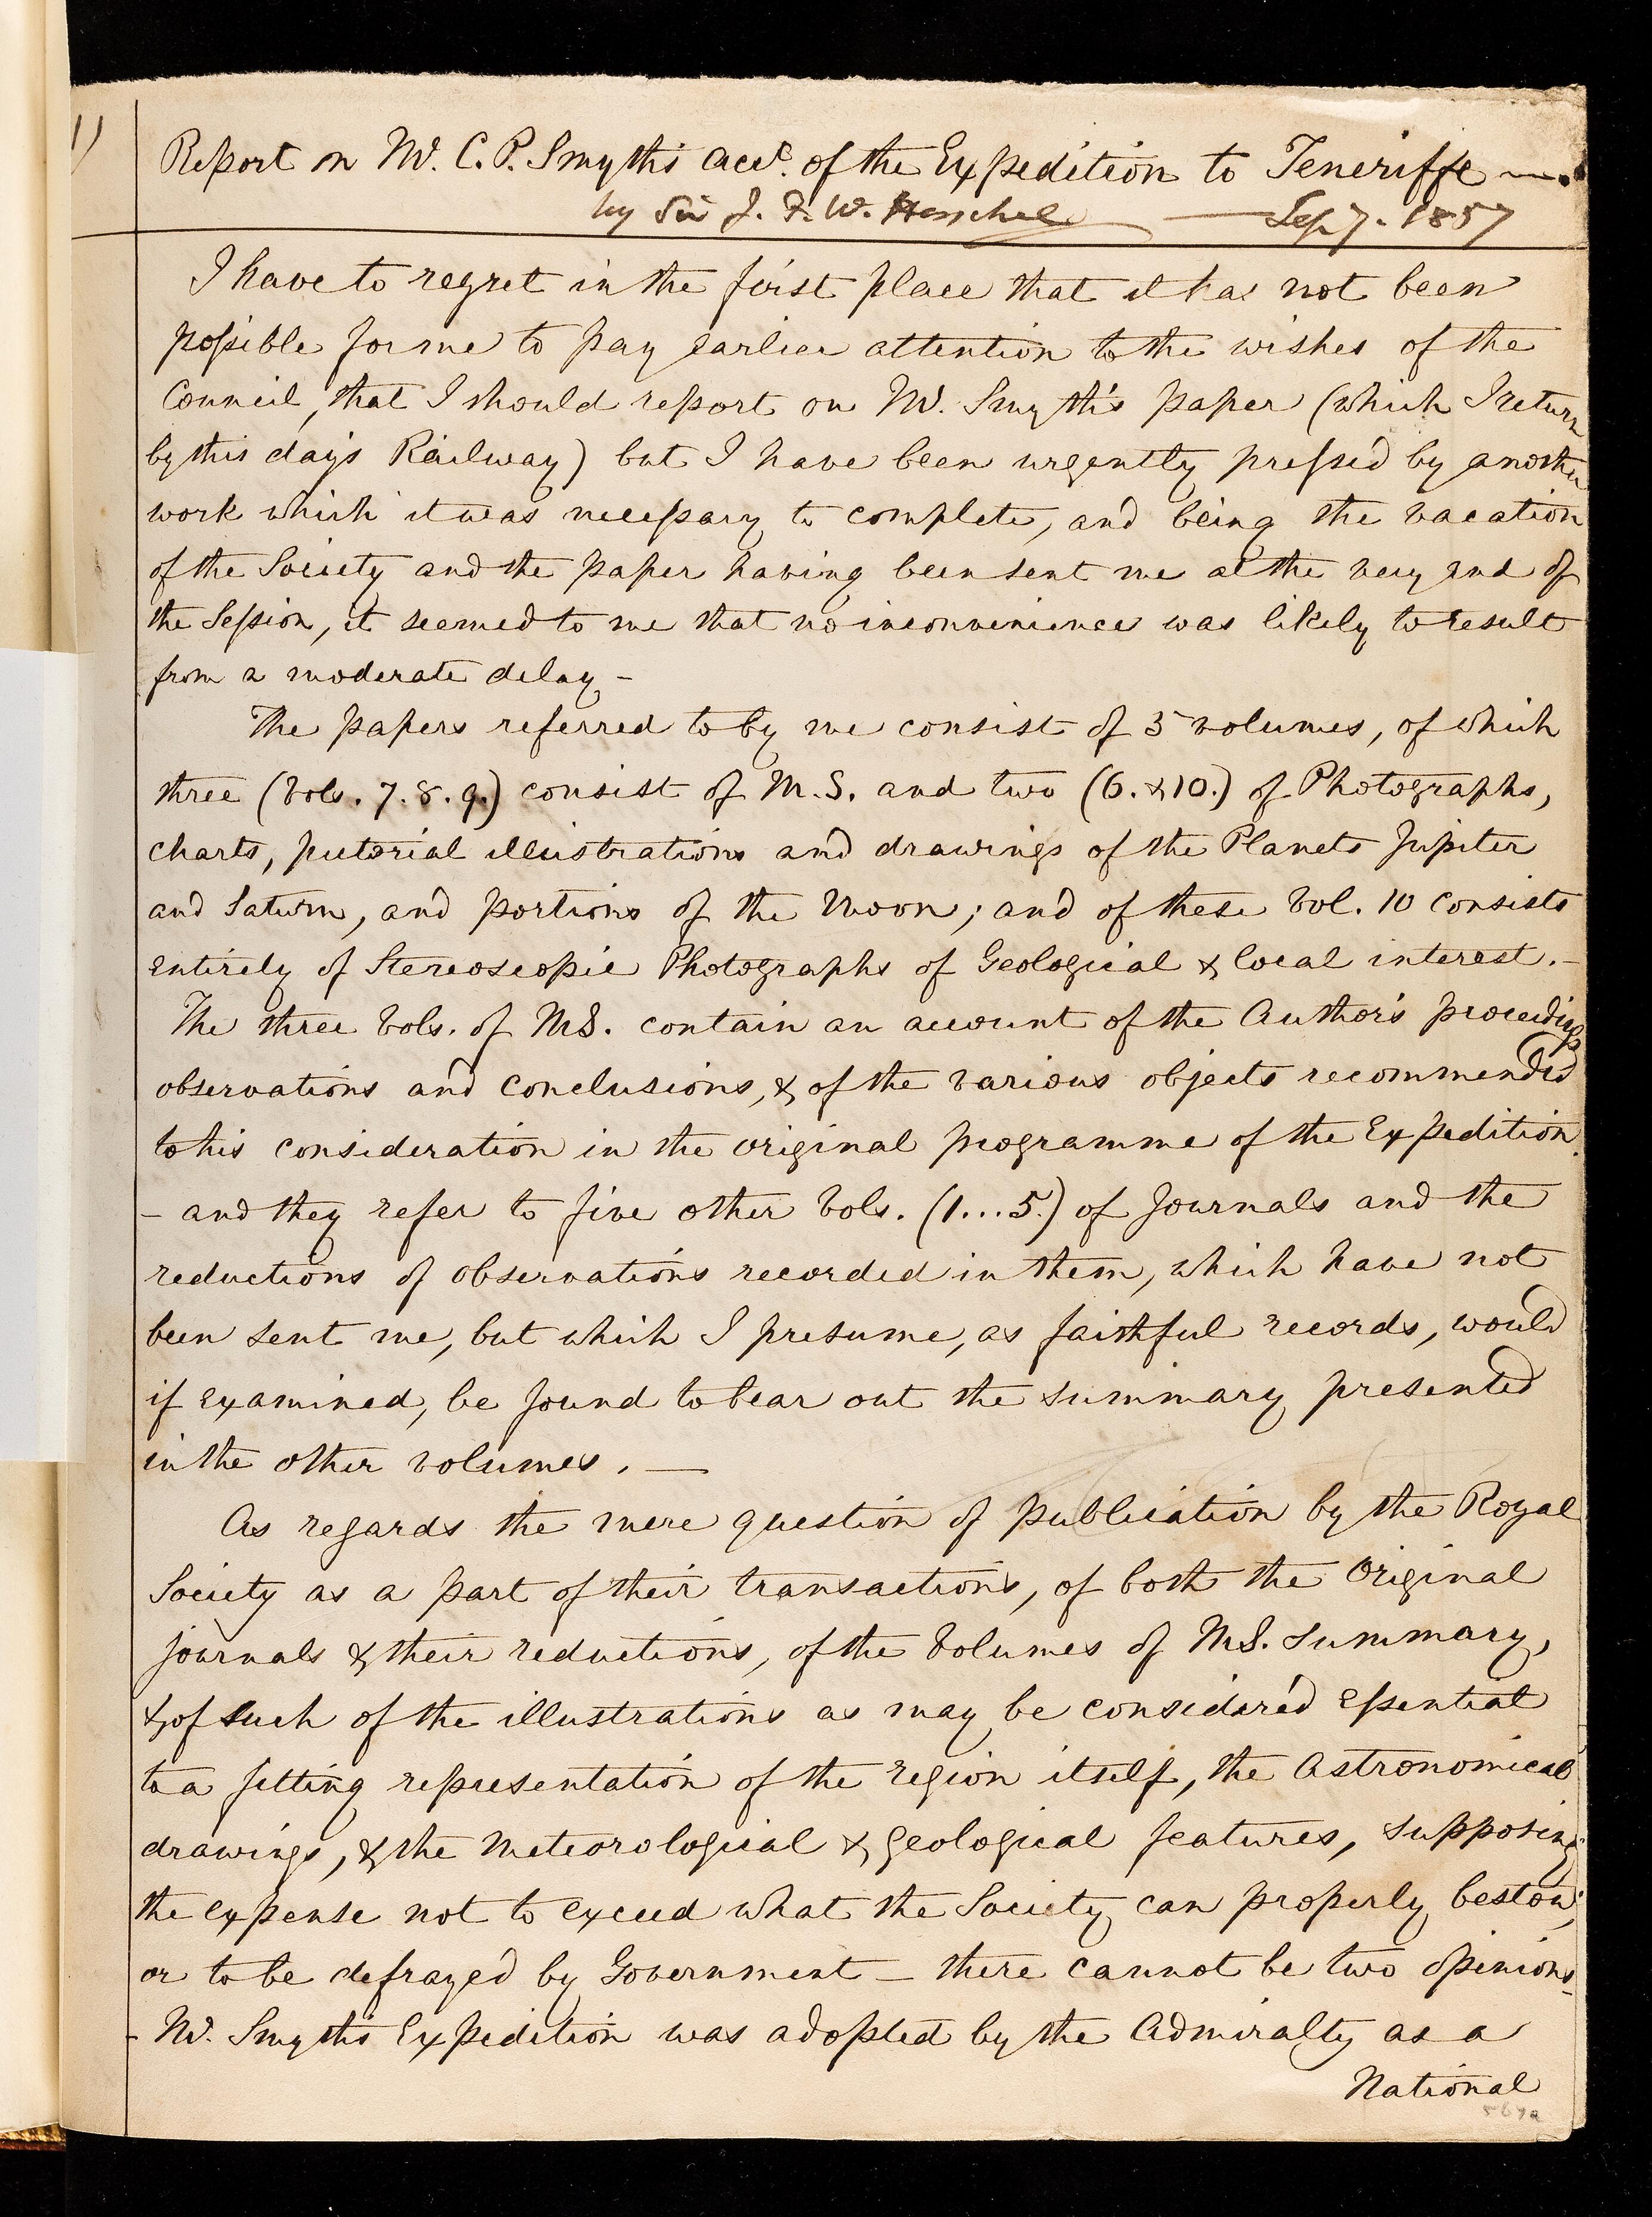 1)
Report on Mr. C. P. Smyth's acct. of the Expedition to Teneriffe —.
by Sir J. F. W. Herschel — Sep 7. 1857
I have to regret in the first place that it has not been
possible for me to pay earlier attention to the wishes of the
Council, that I should report on Mr. Smyth's paper (which I return
by this day's Railway) but I have been urgently pressed by another
work which it was necessary to complete, and being the vacation
of the Society and the paper having been sent me at the very end of
the Session, it seemed to me that no inconvenience was likely to result
from a moderate delay –
The papers referred to by me consist of 5 volumes, of which
three (Vols. 7. 8. 9.) consist of M.S. and two (6. & 10.) of Photographs,
charts, pictorial illustrations and drawings of the Planets Jupiter
and Saturn, and portions of the Moon; and of these Vol. 10 consists
entirely of Stereoscopic Photographs of Geological & local interest. –
The three Vols. of MS. contain an account of the Author's proceedings
observations and conclusions, & of the various objects recommended
to his consideration in the original programme of the Expedition.
– and they refer to five other Vols. (1...5.) of Journals and the
reductions of observations recorded in them, which have not
been sent me, but which I presume, as faithful records, would
if examined, be found to bear out the summary presented
in the other volumes. —
As regards the mere question of publication by the Royal
Society as a part of their transactions, of both the Original
journals & their reductions, of the Volumes of MS. summary,
& of such of the illustrations as may be consider'd essential
to a fitting representation of the region itself, the Astronomical
drawings, & the Meteorological & geological features, supposing
the expense not to exceed what the Society can properly bestow,
or to be defrayed by Government – there cannot be two opinions –
– Mr. Smyth's Expedition was adopted by the Admiralty as a
National